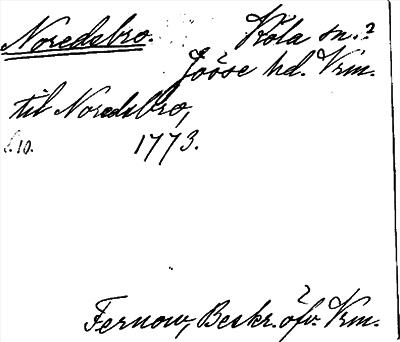 Noredsbro. Kola sn.?
Jösse hd. Vrm.
til Noredsbro,
l.10. 1773.
Fernow, Beskr. öfv. Vrm.